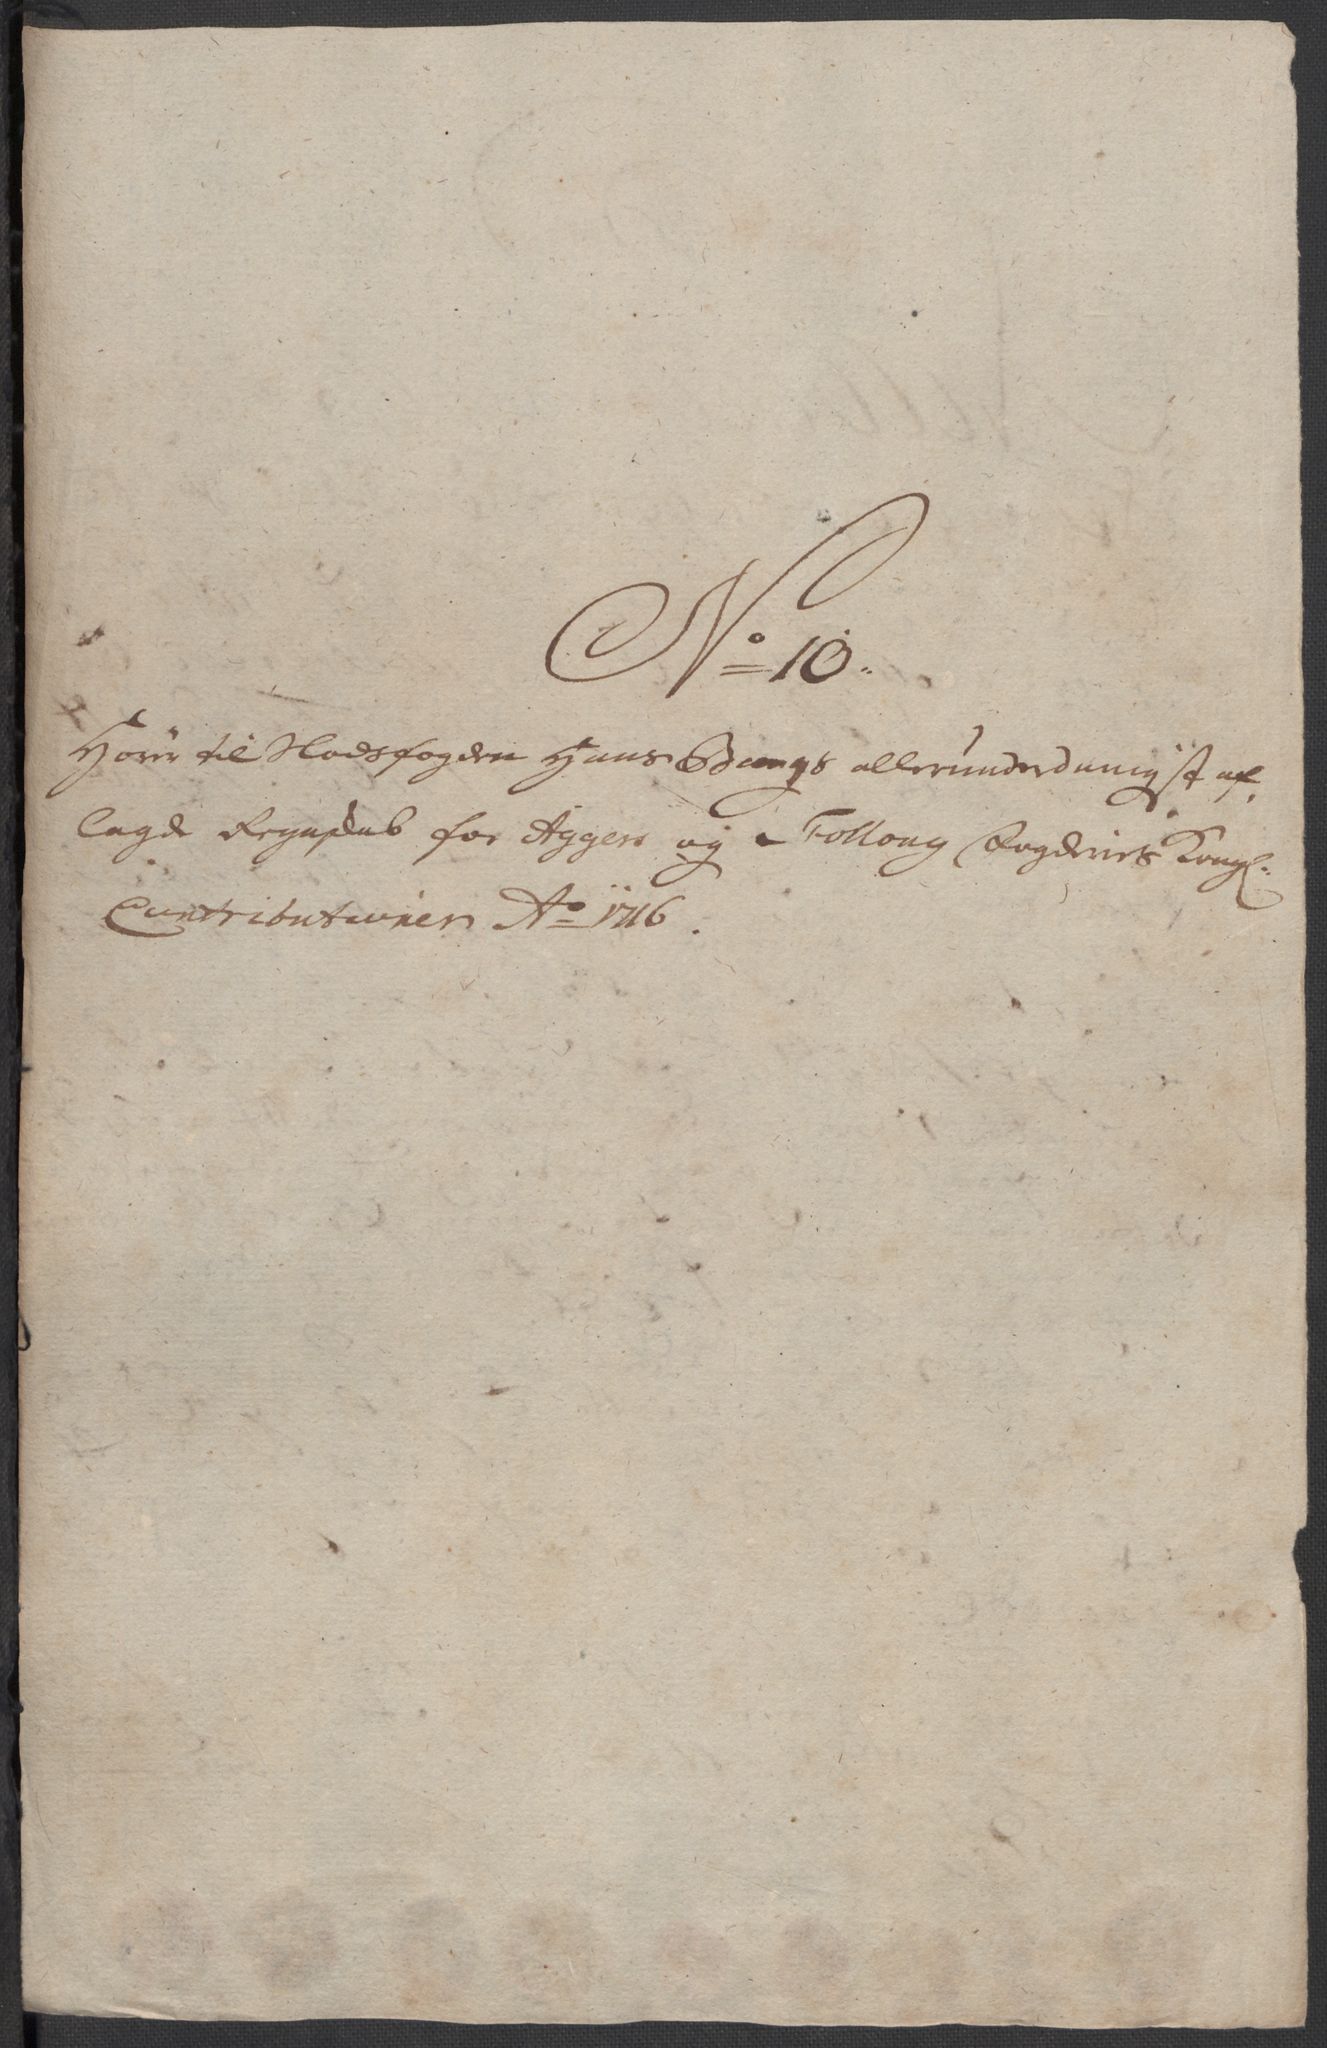 No 10.
Hörer til Slodsfogden Hans Bangs allerunderdanigst af,
lagde Regnskab for Aggers og Folloug Fogderies Kongl:
Contributioner Ao 1716.